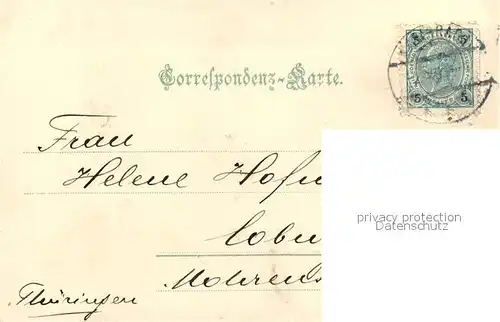 Correspondenz-Karte.
5 5
Frau
Helene Hofm
Cobu
Mohrens
Thüringen
privacy protection
Datenschutz